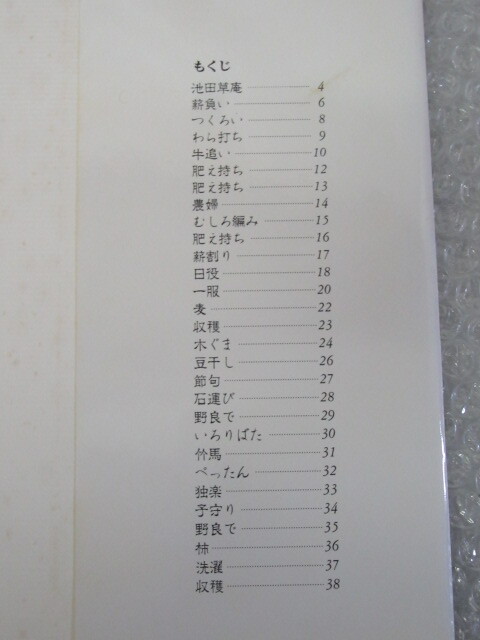 もくじ
池田草庵 4
薪負い 6
つくろい 8
わら打ち 9
牛追い 10
肥え持ち 12
肥え持ち 13
農婦 14
むしろ編み 15
肥え持ち 16
薪割り 17
日役 18
一服 20
麦 22
収穫 23
木ぐま 24
豆干し 26
節句 27
石運び 28
野良で 29
いろりばた 30
竹馬 31
ぺったん 32
独楽 33
子守り 34
野良で 35
柿 36
洗濯 37
収穫 38